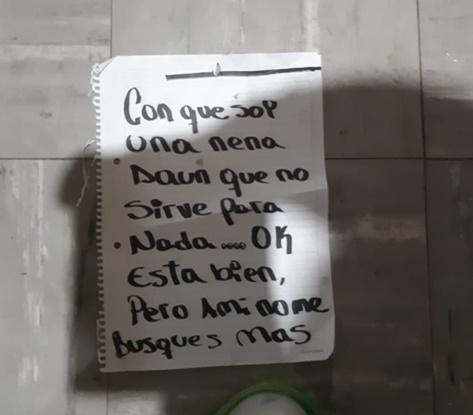 Con que sop
una nena
Daun que no
Sirve para
• Nada.... OK
Esta bien,
Pero Ami no me
Busques mas